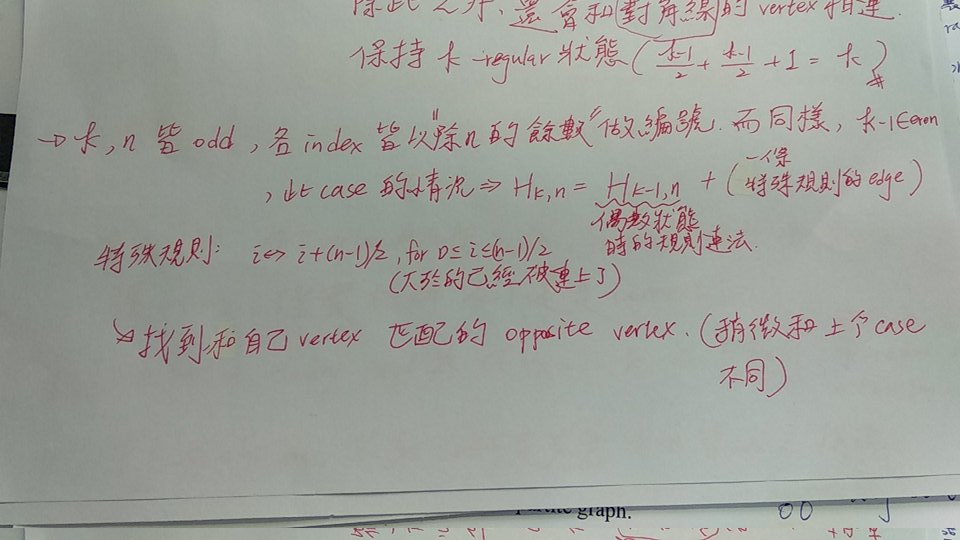 除此之外, 還會和對角線的 vertex 相連.
保持 k-regular 狀態 ( k-1/2 + k-1/2 + 1 = k )#
→ k, n 皆 odd, 各 index 皆以"除n的餘數"做編號. 而同樣, k-1∈even
, 此 case 的情況 ⇒ Hk,n = Hk-1,n + (一條特殊規則的 edge)
偶數狀態時的規則連法.
特殊規則: i↔ i+(n-1)/2, for 0≤i≤(n-1)/2
(大於的已經被連上了)
↘ 找到和自己 vertex 匹配的 opposite vertex. (稍微和上個 case
不同)
graph.